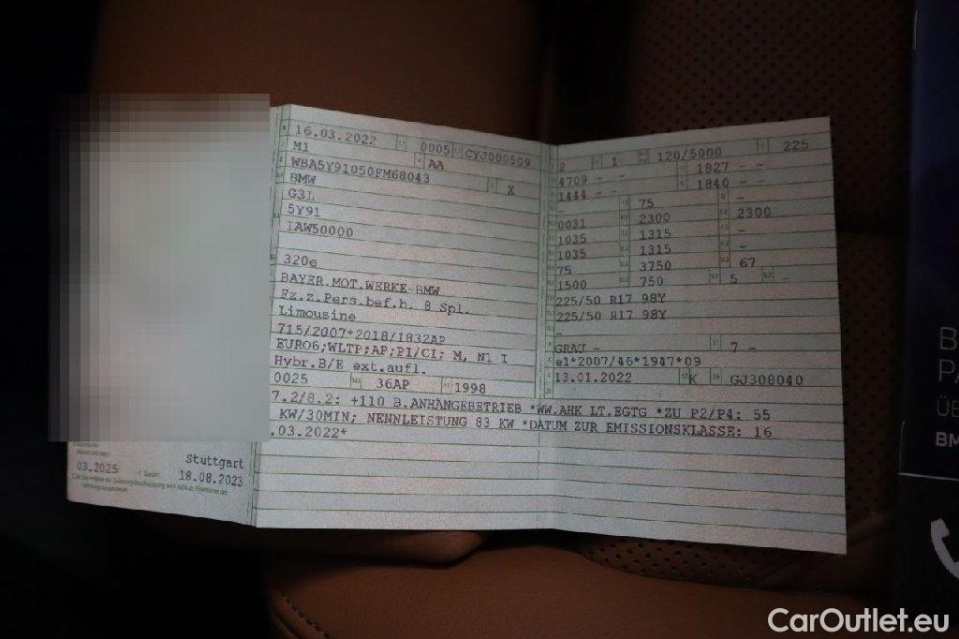 16.03.2022 0005 CYJ000509
M1 AA
WBA5Y91050FM68043 X
BMW
G3L
5Y91
IAW50000
320e
BAYER.MOT.WERKE-BMW
Fz.z.Pers.bef.b. 8 Spl.
Limousine
715/2007*2018/1832AP
EURO6;WLTP;AP;PI/CI; M, N1 I
Hybr.B/E ext.aufl.
0025 36AP 1998
2 1 120/5000 225
4709 - - 1827 -
1444 - - 1840 -
- 75 -
0031 2300 2300
1035 1315 -
1035 1315 -
75 3750 67
1500 750 5 -
225/50 R17 98Y
225/50 R17 98Y
-
GRAU - 7 -
e1*2007/46*1947*09
13.01.2022 K GJ308040
7.2/8.2: +110 B.ANHÄNGEBETRIEB *WW.AHK LT.EGTG *ZU P2/P4: 55
KW/30MIN; NENNLEISTUNG 83 KW *DATUM ZUR EMISSIONSKLASSE: 16
.03.2022*
Stuttgart
03.2025 18.08.2023
B
PA
ÜB
BM
CarOutlet.eu